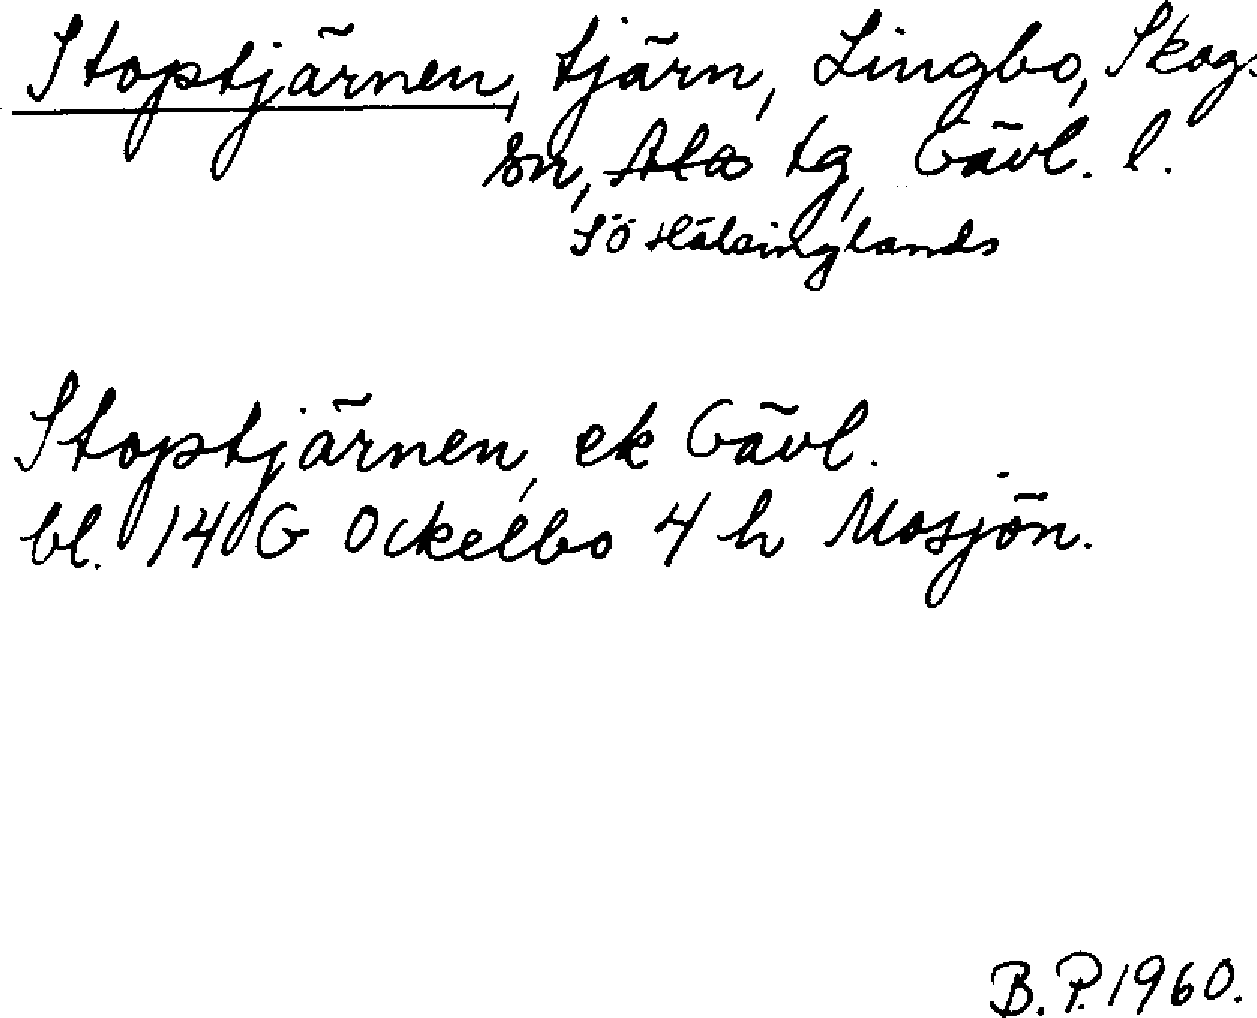 Stoptjärnen, tjärn, Lingbo, Skogs
sn, Ala tg, Gävl. l.
SÖ Hälsinglands
Stoptjärnen, ek Gävl.
bl. 14 G Ockelbo 4 h Mosjön.
B. P. 1960.